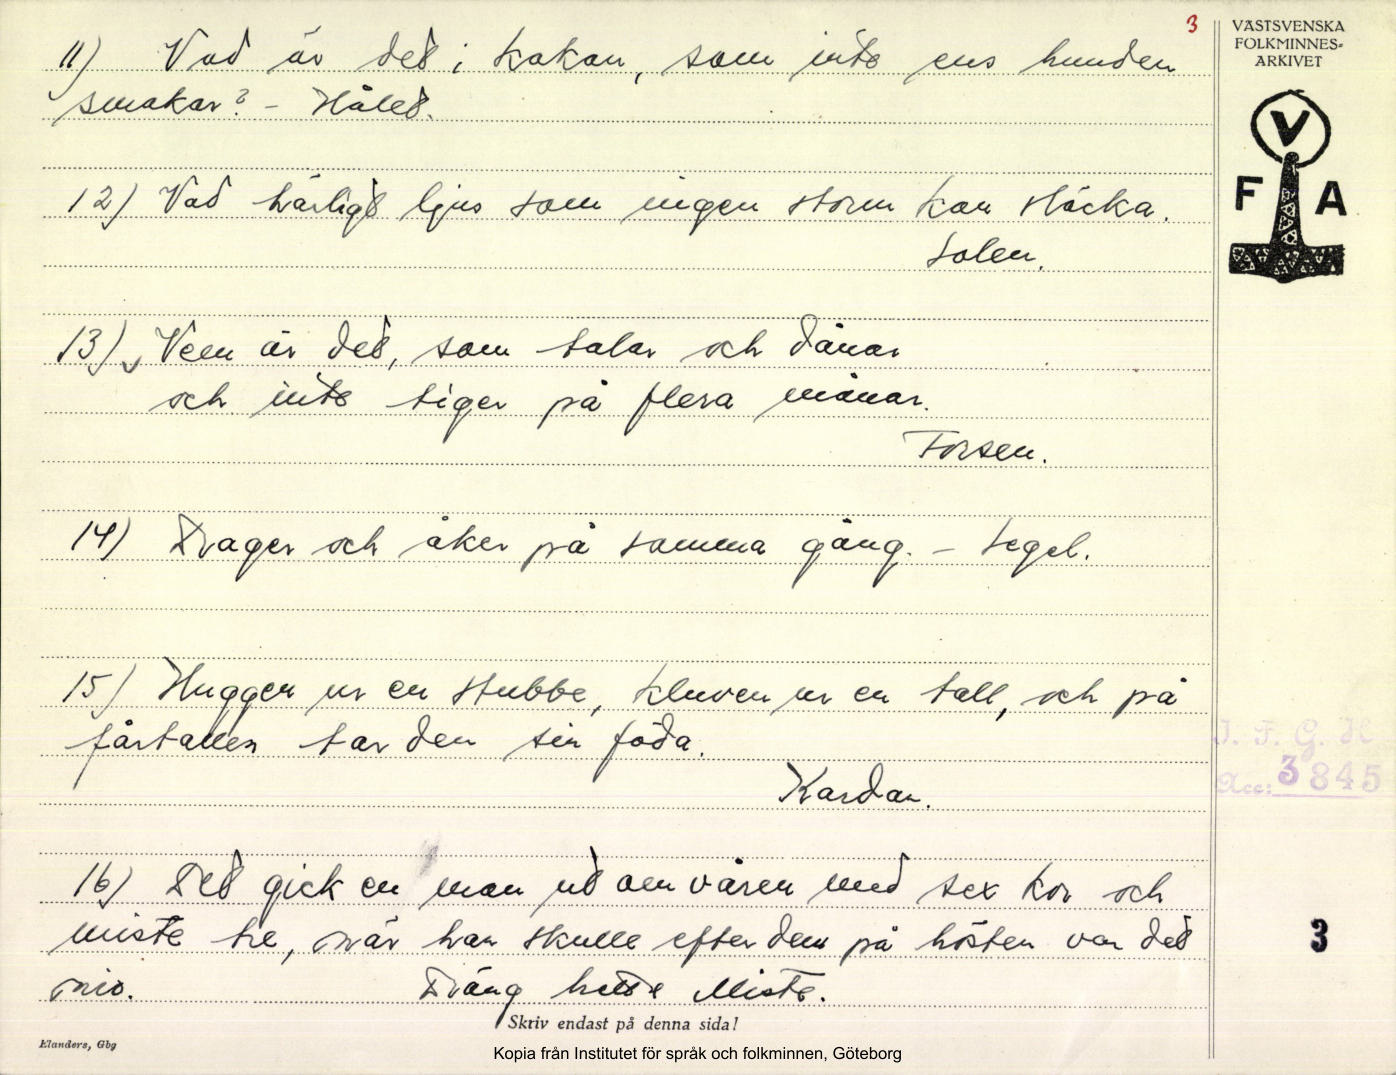 3
VÄSTSVENSKA
FOLKMINNES-
ARKIVET
V
F A
11) Vad är det i kakan, som inte ens hunden
smakar? - Hålet.
12) Vad härligt ljus som ingen storm kan släcka.
Solen.
13) Vem är det, som talar och dånar
och inte tiger på flera månar.
Forsen.
14) Drager och åker på samma gång. - Segel.
15) Huggen ur en stubbe, kluven ur en tall, och på
fårtallen tar den sin föda.
Kardan.
16) Det gick en man ut om våren med sex kor och
miste tre, när han skulle efter dem på hösten var det
nio. Dräng hette Miste.
I. F. G. H
Acc: 3845
3
Skriv endast på denna sida!
Elanders, Gbg
Kopia från Institutet för språk och folkminnen, Göteborg